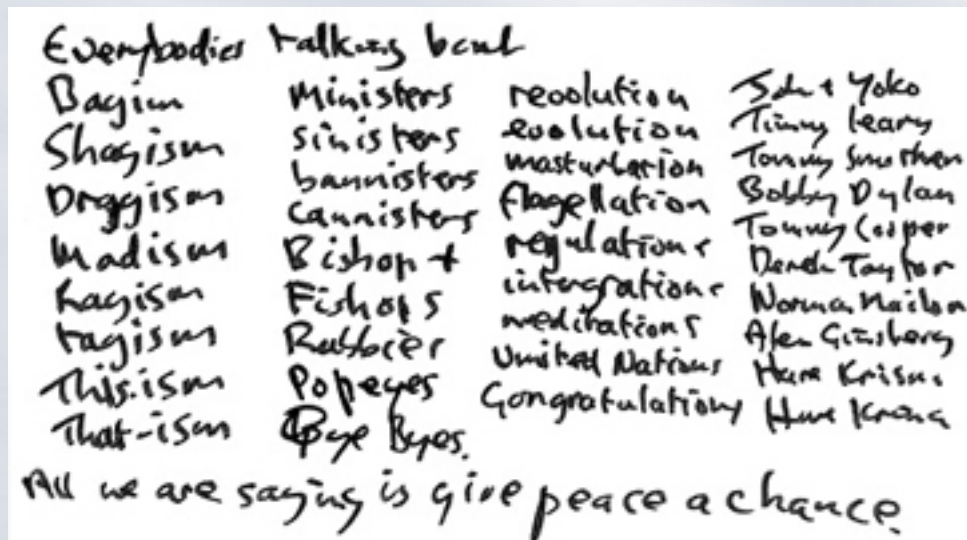 Everybodies talking bout
Bagism
Shagism
Draggism
Madism
Ragism
tagism
This-ism
That-ism
Ministers
sinisters
bannisters
Cannisters
Bishop +
Fishops
Rabbier
Popeyes
Bye Byes.
revolution
evolution
masturbation
flagellation
regulations
intergrations
meditations
United Nations
Congratulations
John + Yoko
Timmy Leary
Tommy Smothers
Bobby Dylan
Tommy Cooper
Derek Taylor
Norman Mailer
Alen Ginsberg
Hare Krisna
Hare Krisna
All we are saying is give peace a chance.